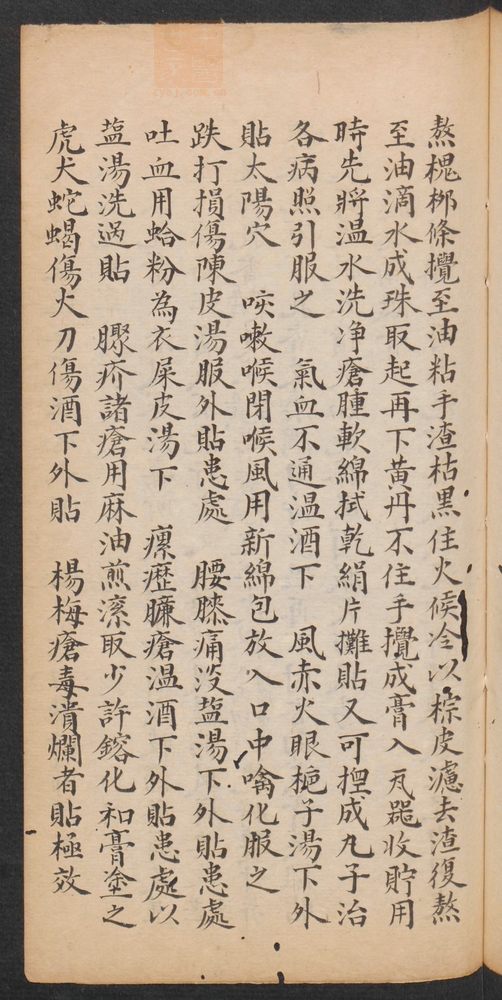 熬槐柳條攪至油粘手渣枯黑住火候冷以棕皮濾去渣復熬
至油滴水成珠取起再下黃丹不住手攪成膏入瓦器收貯用
時先將温水洗净瘡腫軟綿拭乾絹片攤貼又可揑成九子治
各病照引服之　氣血不通温酒下　風赤火眼梔子湯下外
貼太陽穴　咳嗽喉閉喉風用新綿包放入口中噙化服之
跌打損傷陳皮湯服外貼患處　腰膝痛没盐湯下外貼患處
吐血用蛤粉為衣屎皮湯下　瘰癧臁瘡温酒下外貼患處以
盐湯洗過貼　臁疥諸瘡用麻油煎滚取少許鎔化和膏塗之
虎犬蛇蝎傷火刀傷酒下外貼　楊梅瘡毒潰爛者貼極效